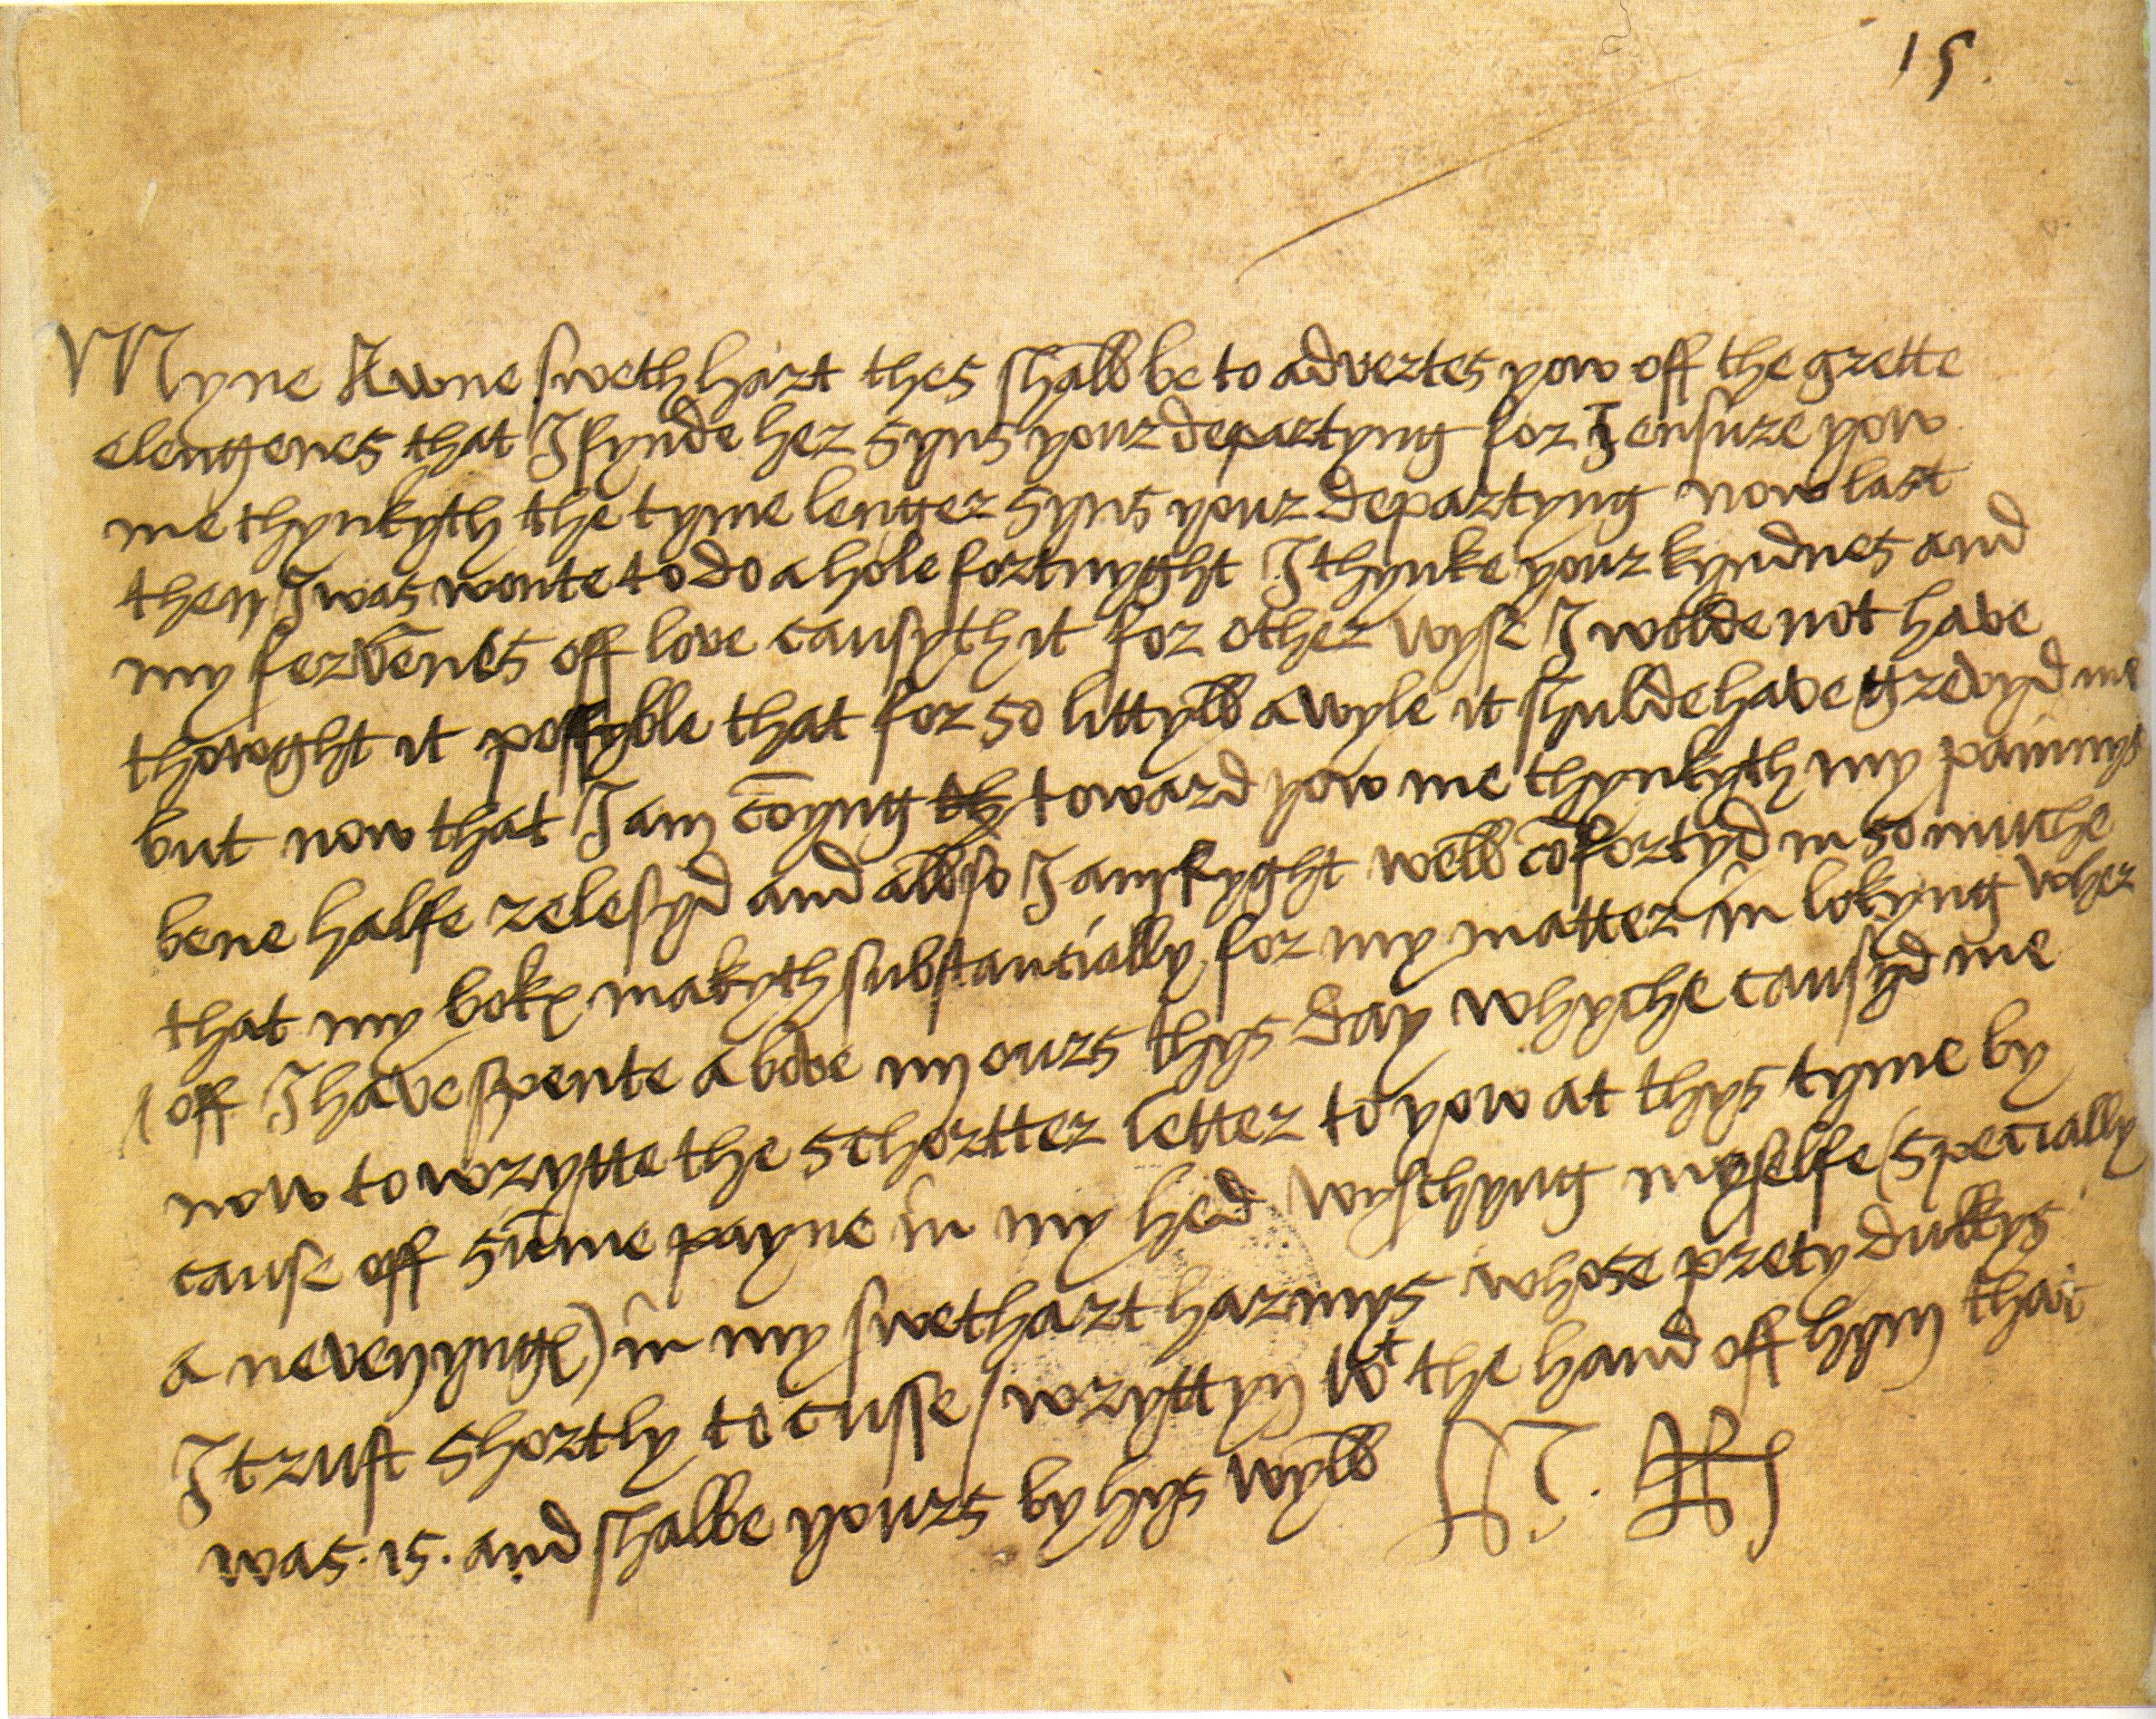 15.
Myne awne swethhart thes shall be to advertes yow off the grette
elengenes that I fynde her syns your departyng for I ensure yow
me thynkyth the tyme lenger syns your departyng now last
then I was wonte to do a hole fortnyght I thynke your kyndnes and
my fervēnes off love causyth it for other wyse I wolde not have
thowght it possyble that for so littyll a wyle it shulde have grevyd me
but now that I am cōyng toward yow me thynkyth my painnys
bene halfe relesyd and allso I am ryght well cōfortyd in so muche
that my bokes makyth substantially for my matter in lokyng wher
off I have spente above iiij ours thys day whyche causyd me
now to wrytte the schortter letter to yow at thys tyme by
cause off sūme payne in my hed wyschyng myselfe (specially
a nevenynge) in my swethart harmys whose prety dukkys
I trust shortly to cusse / wryttyn wt the hand off hym that
was .is. and shalbe yours by hys wyll H. Rx